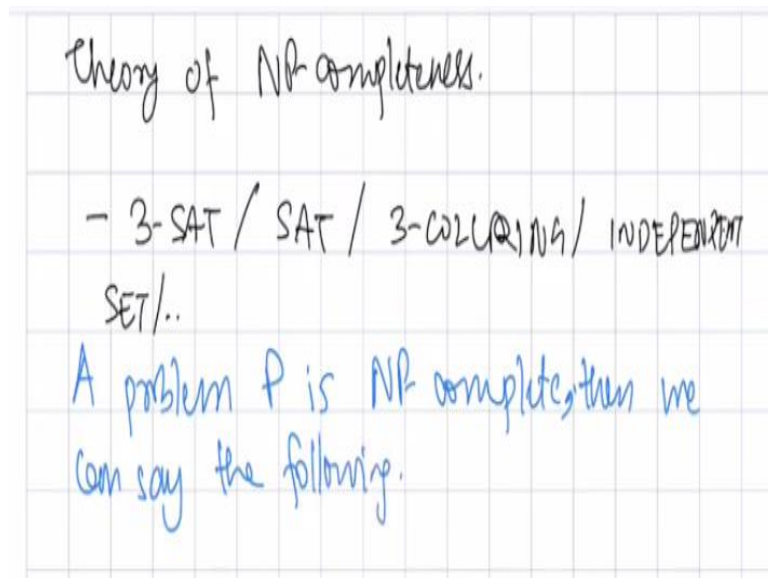 Theory of NP-completeness.
- 3-SAT / SAT / 3-COLORING / INDEPENDENT
SET/..
A problem P is NP complete, then we
can say the following.